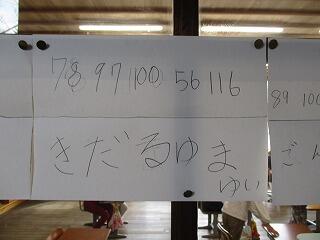 78 97 100 56 116
89 100
きだるゆま
ゆい
ざん